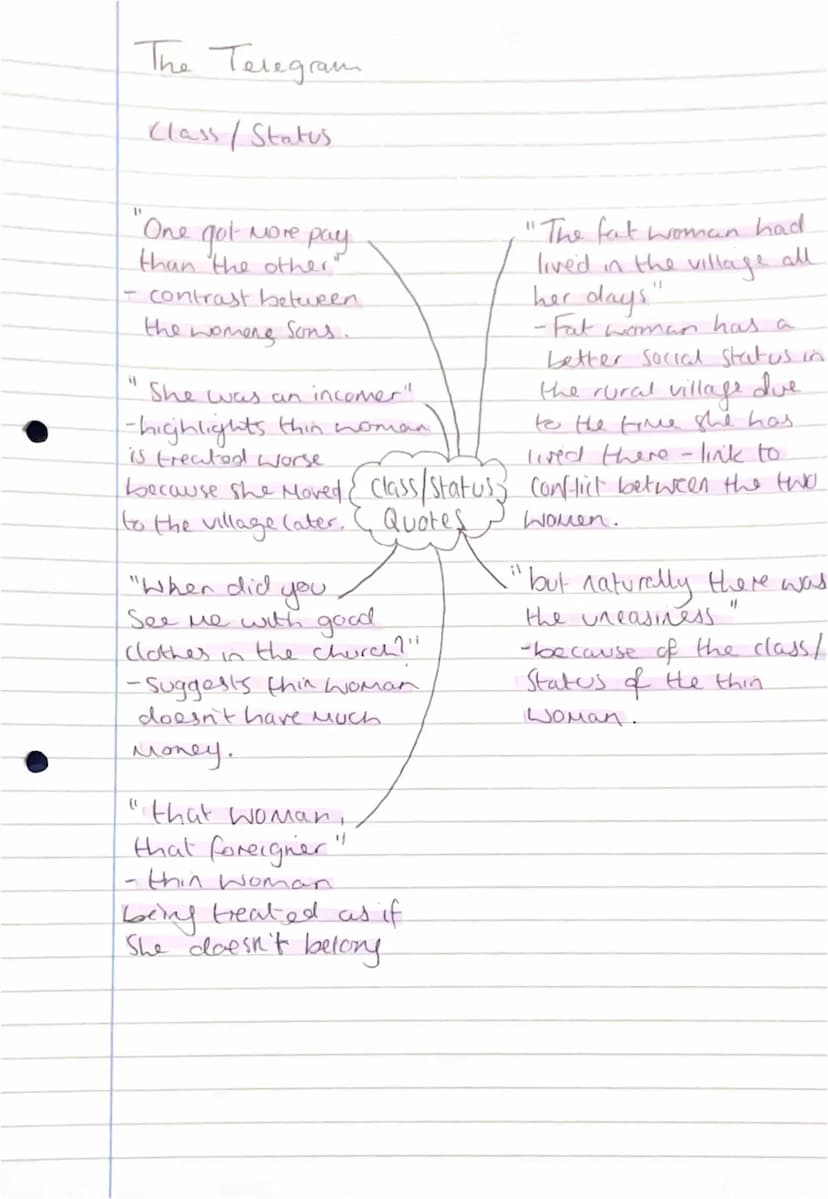 The Telegram
Class/Status
"One got more pay
than the other"
- contrast between
the womens sons.
"She was an incomer"
- highlights thin woman
is treated worse
because she moved
to the village later.
"When did you
see me with good
clothes in the church?"
- suggests thin woman
doesn't have much
money.
"that woman,
that foreigner"
- thin woman
being treated as if
she doesn't belong
Class/Status
Quotes
"The fat woman had
lived in the village all
her days"
- Fat woman has a
better social status in
the rural village due
to the time she has
lived there - link to
conflict between the two
women.
"but naturally there was
the uneasiness"
- because of the class/
status of the thin
woman.